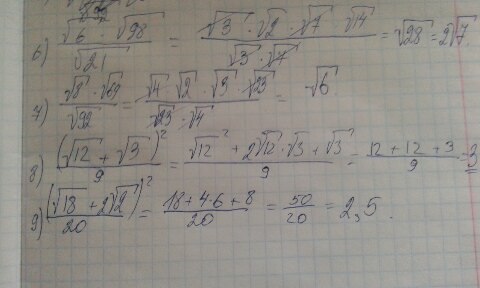 6) (√6 · √98) / √21 = (√3 · √2 · √7 · √14) / (√3 · √7) = √28 = 2√7
7) (√8 · √69) / √92 = (√4 · √2 · √3 · √23) / (√23 · √4) = √6
8) (√12 + √3)² / 9 = (√12² + 2√12 · √3 + √3²) / 9 = (12 + 12 + 3) / 9 = 3
9) (√18 + 2√2)² / 20 = (18 + 4·6 + 8) / 20 = 50 / 20 = 2,5.